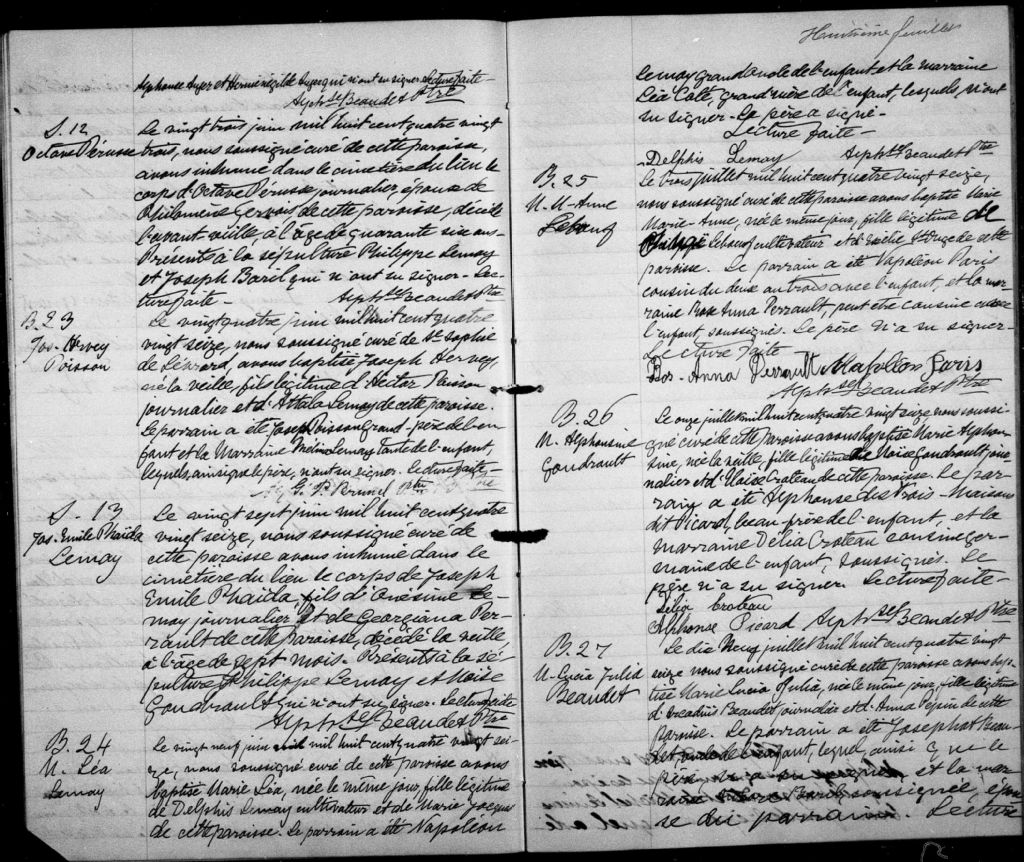 Alphonse Auger et Herménégilde Auger qui n'ont su signer. Lecture faite –
Alph.se Beaudet Ptre
S. 12
Octave Pérusse
Le vingt trois juin mil huit cent quatre vingt
trois, nous soussigné curé de cette paroisse,
avons inhumé dans le cimetière du lieu le
corps d'Octave Pérusse journalier, époux de
Philomène Gervais de cette paroisse, décédé
l'avant-veille, à l'âge de quarante six ans.
Présents à la sépulture Philippe Lemay
et Joseph Baril qui n'ont su signer. Lec-
ture faite – Alph.se Beaudet Ptre
B. 23
Jos. Hervey
Poisson
Le vingt quatre juin mil huit cent quatre
vingt seize, nous soussigné curé de Ste Sophie
de Lévrard, avons baptisé Joseph Hervey,
né la veille, fils légitime d'Hector Poisson
journalier et d'Attala Lemay de cette paroisse.
Le parrain a été Joseph Poisson Grand-père de l'en-
fant et la Marraine Lemay Tante de l'enfant,
lesquels, ainsi que le père, n'ont su signer. Lecture faite –
Brunel Ptre
S. 13
Jos. Emile Phaida
Lemay
Le vingt sept juin mil huit cent quatre
vingt seize, nous soussigné curé de
cette paroisse avons inhumé dans le
cimetière du lieu le corps de Joseph
Emile Phaida, fils d'Onésime Le-
may journalier et de Georgiana Per-
rault de cette paroisse, décédé la veille
à l'âge de sept mois. Présents à la sé-
pulture, Philippe Lemay et Moise
Goudrault qui n'ont su signer. Lecture faite
Alph.se Beaudet Ptre
B. 24
M. Léa
Lemay
Le vingt neuf juin mil huit cent quatre vingt sei-
ze, nous soussigné curé de cette paroisse avons
baptisé Marie Léa, née le même jour, fille légitime
de Delphis Lemay cultivateur et de Marie Jacques
de cette paroisse. Le parrain a été Napoléon
Huitième feuillet
Lemay grand oncle de l'enfant et la marraine
Léa Coté, grand'mère de l'enfant, lesquels, n'ont
su signer. Le père a signé –
Lecture faite –
Delphis Lemay Alph.se Beaudet Ptre
B. 25
M. M-Anne
Lebœuf
Le trois juillet mil huit cent quatre vingt seize,
nous soussigné curé de cette paroisse avons baptisé Marie
Marie-Anne, née le même jour, fille légitime de
Lebœuf cultivateur et d'Emélie St-Onge de cette
paroisse. Le parrain a été Napoléon Paris
cousin du deux au trois avec l'enfant, et la mar-
raine Rose Anna Perrault, petite cousine avec
l'enfant, soussignés. Le père n'a su signer –
Lecture faite
Ros-Anna Perrault Napoléon Paris
Alph.se Beaudet Ptre
B. 26
M. Alphonsine
Goudrault
Le onze juillet mil huit cent quatre vingt seize nous soussi-
gné curé de cette paroisse avons baptisé Marie Alphon-
sine, née la veille, fille légitime de Moïse Goudrault jour-
nalier et d' Croteau de cette paroisse. Le par-
rain a été Alphonse des trois-Maisons
dit Picard, beau-frère de l'enfant, et la
marraine Délia Croteau cousine ger-
maine de l'enfant, soussignés. Le
père n'a su signer. Lecture faite –
Délia Croteau
Alphonse Picard Alph.se Beaudet Ptre
B. 27
M. Lucia Julia
Beaudet
Le dix Neuf juillet mil huit cent quatre vingt
seize nous soussigné curé de cette paroisse avons bap-
tisé Marie Lucia Julia, née le même jour, fille légitime
d' Beaudet journalier et d'Anna Pépin de cette
paroisse. Le parrain a été Josephat Beau-
det oncle de l'enfant, lequel, ainsi que le
père n'a su signer et la mar-
raine Baril soussignée, épou-
se du parrain. Lecture